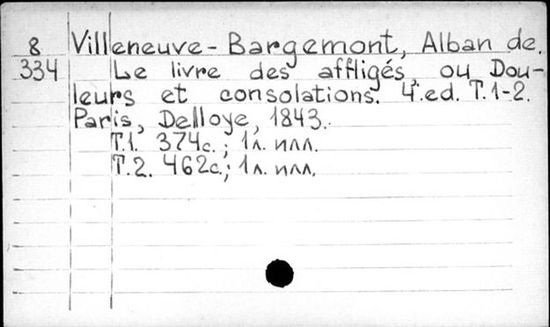 8 Villeneuve-Bargemont, Alban de.
334 Le livre des affligés, ou Dou-
leurs et consolations. 4.ed. T.1-2.
Paris, Delloye, 1843.
T.1. 374с.; 1л. илл.
T.2. 462с.; 1л. илл.